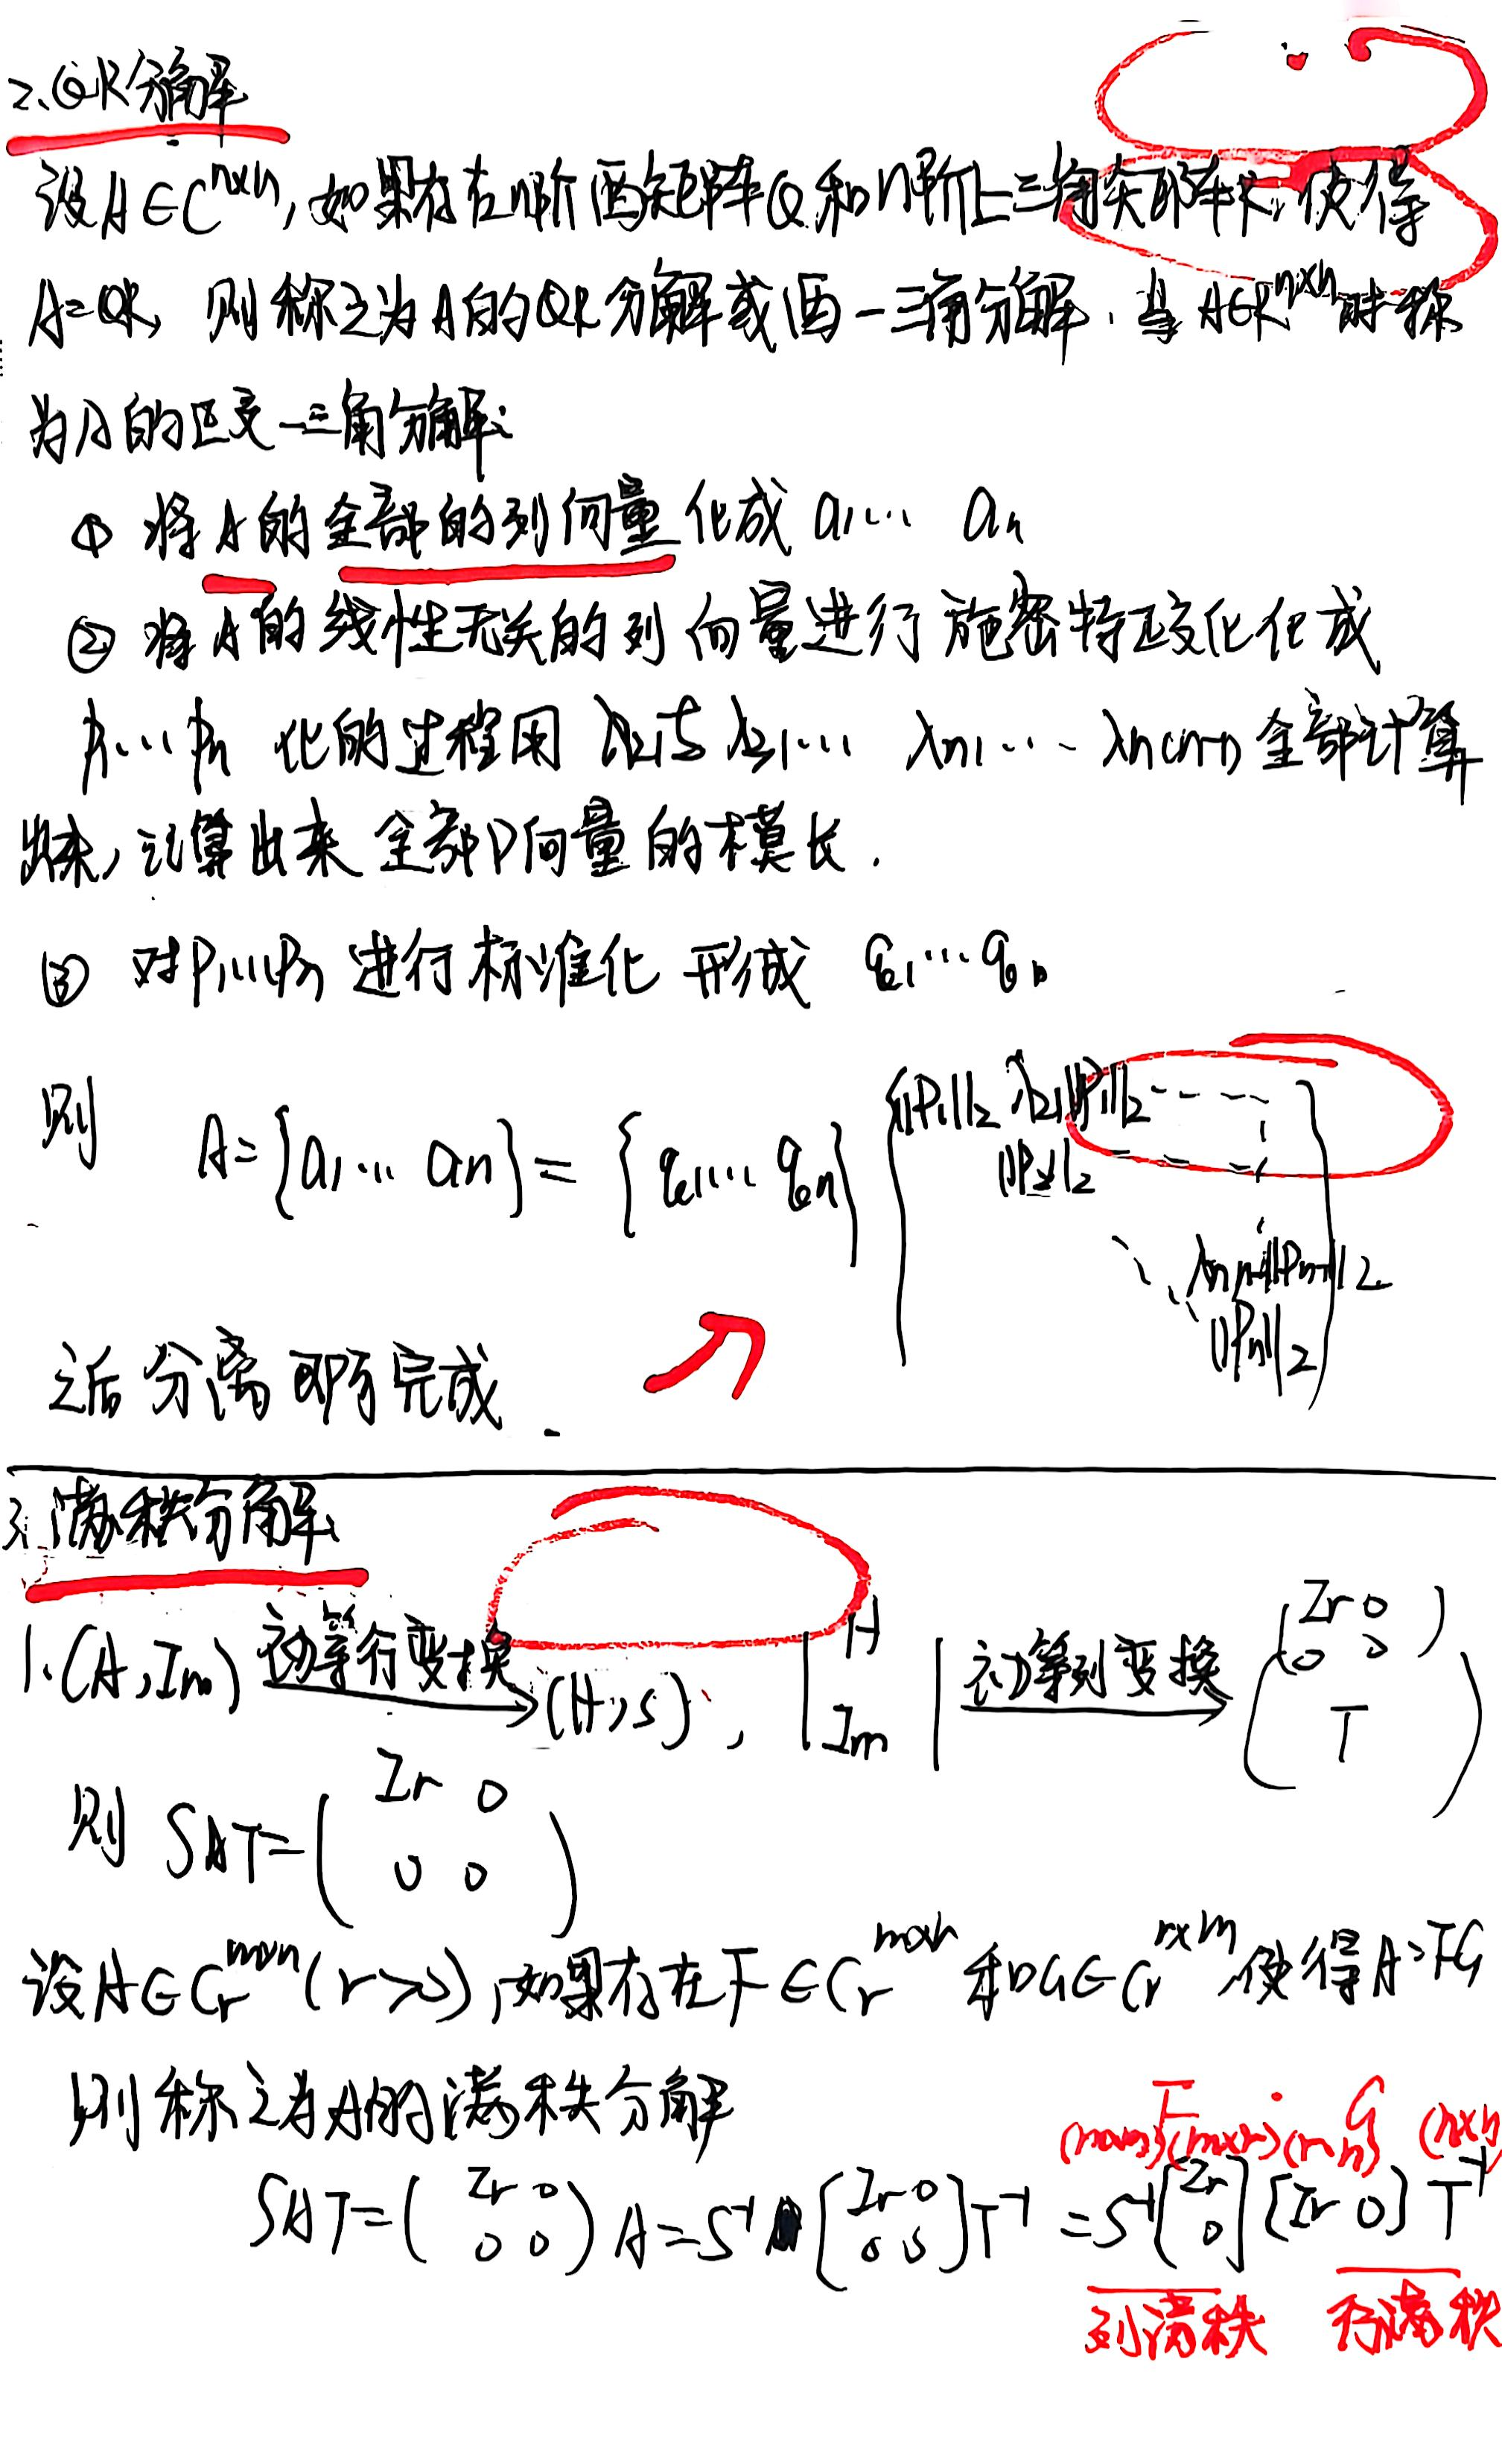 2、QR分解
设A∈C^{n×n},如果存在n阶酉矩阵Q和n阶上三角矩阵R,使得
A=QR,则称之为A的QR分解或酉-三角分解.当A∈R^{n×n}时称
为A的正交-三角分解:
① 将A的全部的列向量化成 a1... an
② 将A的线性无关的列向量进行施密特正交化化成
p1...pn 化的过程用 λ21 λ31... λn1...λn(n-1) 全部计算
出来,计算出来全部p向量的模长.
③ 对p1...pn 进行标准化 形成 q1...qn
则 A=[a1... an]=[q1... qn] [||P1||2 λ21||P1||2 ---
||P2||2 ---
λn n-1||Pn-1||2
||Pn||2]
之后分离即可完成.
3.满秩分解
1.(A,Im) 初等行变换 (H,S), |H Im| 初等列变换 (Ir 0 0 0 T)
则 SAT=(Ir 0 0 0)
设A∈Cr^{m×n}(r>0),如果存在F∈Cr 和G∈Cr 使得A=FG
则称之为A的满秩分解
F G
(m×m)(m×r)(r n) (n×n)
SAT=(Ir 0 0 0) A=S^{-1}[Ir 0 0 0]T^{-1} =S^{-1}[Ir 0][Ir 0]T^{-1}
列满秩 行满秩